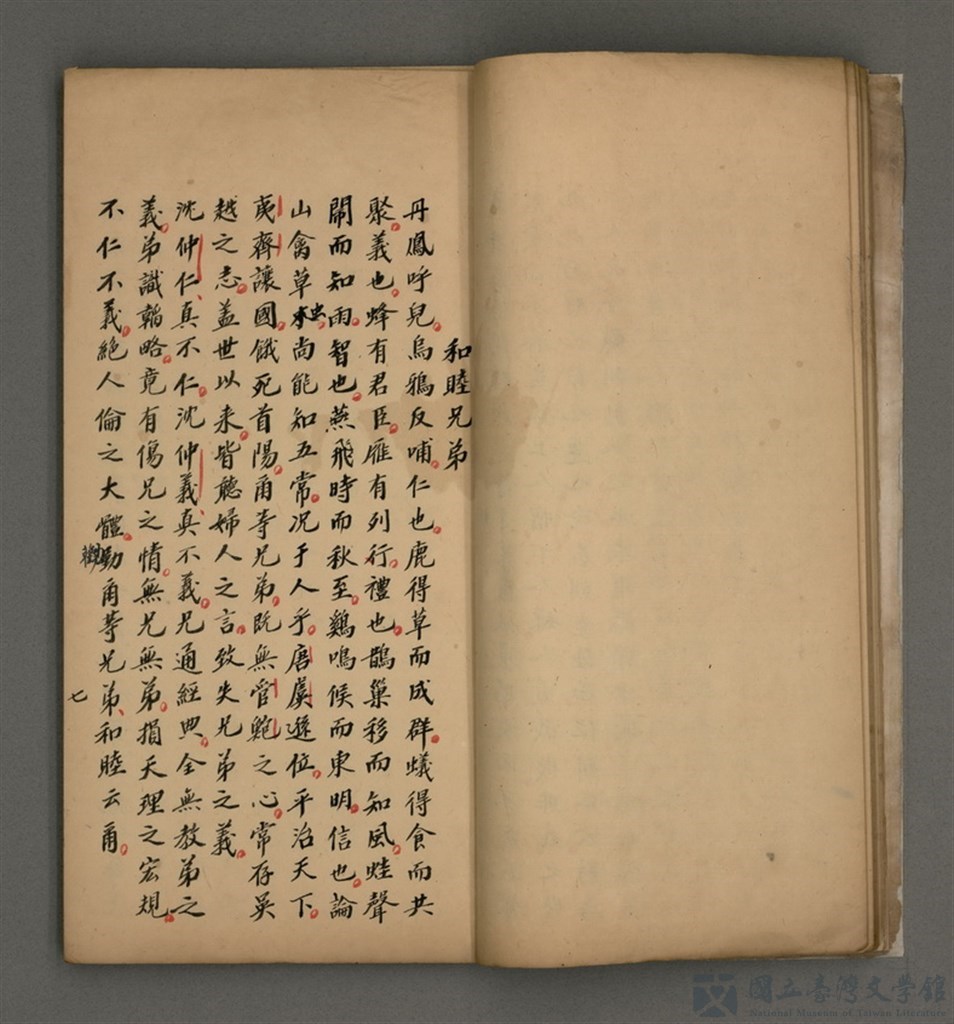 和睦兄弟
丹鳳呼兒。烏鴉反哺。仁也。鹿得草而成群。蟻得食而共
聚。義也。蜂有君臣。雁有列行。禮也。鵲巢移而知風。蛙聲
鬧而知雨。智也。燕飛時而秋至。鷄鳴候而東明。信也。論
山禽草虫。尚能知五常。况于人乎。唐虞遜位。平治天下。
夷齊讓國。餓死首陽。甬等兄弟。既無管鮑之心。常存吴
越之志。盖世以来。皆聽婦人之言。致失兄弟之義。
沈仲仁、真不仁。沈仲義、真不義。兄通經典。全無教弟之
義。弟識韜略。竟有傷兄之情。無兄無弟。捐天理之宏規。
不仁不義。絕人倫之大體。勸甬等兄弟、和睦云甬。
七
國立臺灣文學館
National Museum of Taiwan Literature